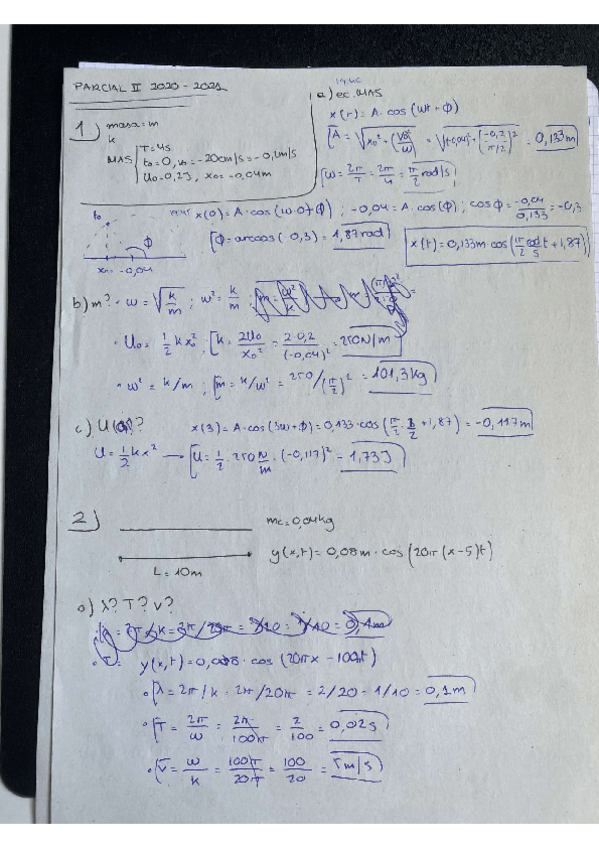 PARCIAL II 2020 - 2021
1) masa = m
k
MAS | T = 4s
t₀ = 0, v₀ = -20cm/s = -0,2m/s
U₀ = 0,2J, x₀ = -0,04m
a) ec. MAS
x(t) = A · cos(ωt + ϕ)
A = √(x₀² + (v₀/ω)²) = √((-0,04)² + (-0,2/(π/2))²) = 0,133m
ω = 2π/T = 2π/4 = π/2 rad/s
t₀
ϕ
x₀ = -0,04
x(0) = A · cos(ω·0 + ϕ) ; -0,04 = A · cos(ϕ) ; cos ϕ = -0,04/0,133 = -0,3
ϕ = arccos(-0,3) = 1,87 rad
x(t) = 0,133m · cos(π/2 rad/s t + 1,87)
b) m? · ω = √(k/m) ; ω² = k/m ;
· U₀ = 1/2 k x₀² ; k = 2U₀/x₀² = 2·0,2/(-0,04)² = 250N/m
· ω² = k/m ; m = k/ω² = 250/(π/2)² = 101,3kg
c) U(3)?
x(3) = A · cos(3ω + ϕ) = 0,133 · cos(π/2 · 3 + 1,87) = -0,117m
U = 1/2 k x² → U = 1/2 · 250 N/m · (-0,117)² = 1,73J
2)
mc = 0,04kg
L = 10m
y(x,t) = 0,08m · cos(20π(x - 5)t)
a) λ? T? v?
y(x,t) = 0,08 · cos(20πx - 100πt)
· λ = 2π/k = 2π/20π = 2/20 = 1/10 = 0,1m
· T = 2π/ω = 2π/100π = 2/100 = 0,02s
· v = ω/k = 100π/20π = 100/20 = 5m/s